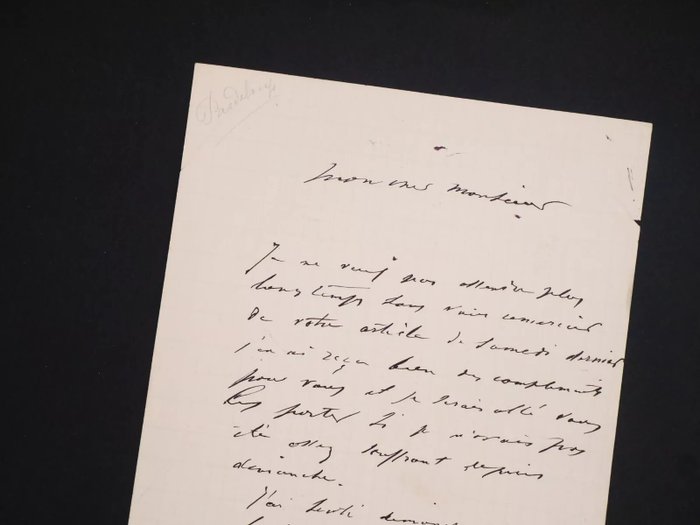 mon cher monsieur
Je ne veux pas attendre plus
longtemps sans vous remercier
de votre article de samedi dernier
j'en ai reçu bien des compliments
pour vous et je serais allé vous
les porter si je n'avais pas
été assez souffrant depuis
dimanche.
J'ai